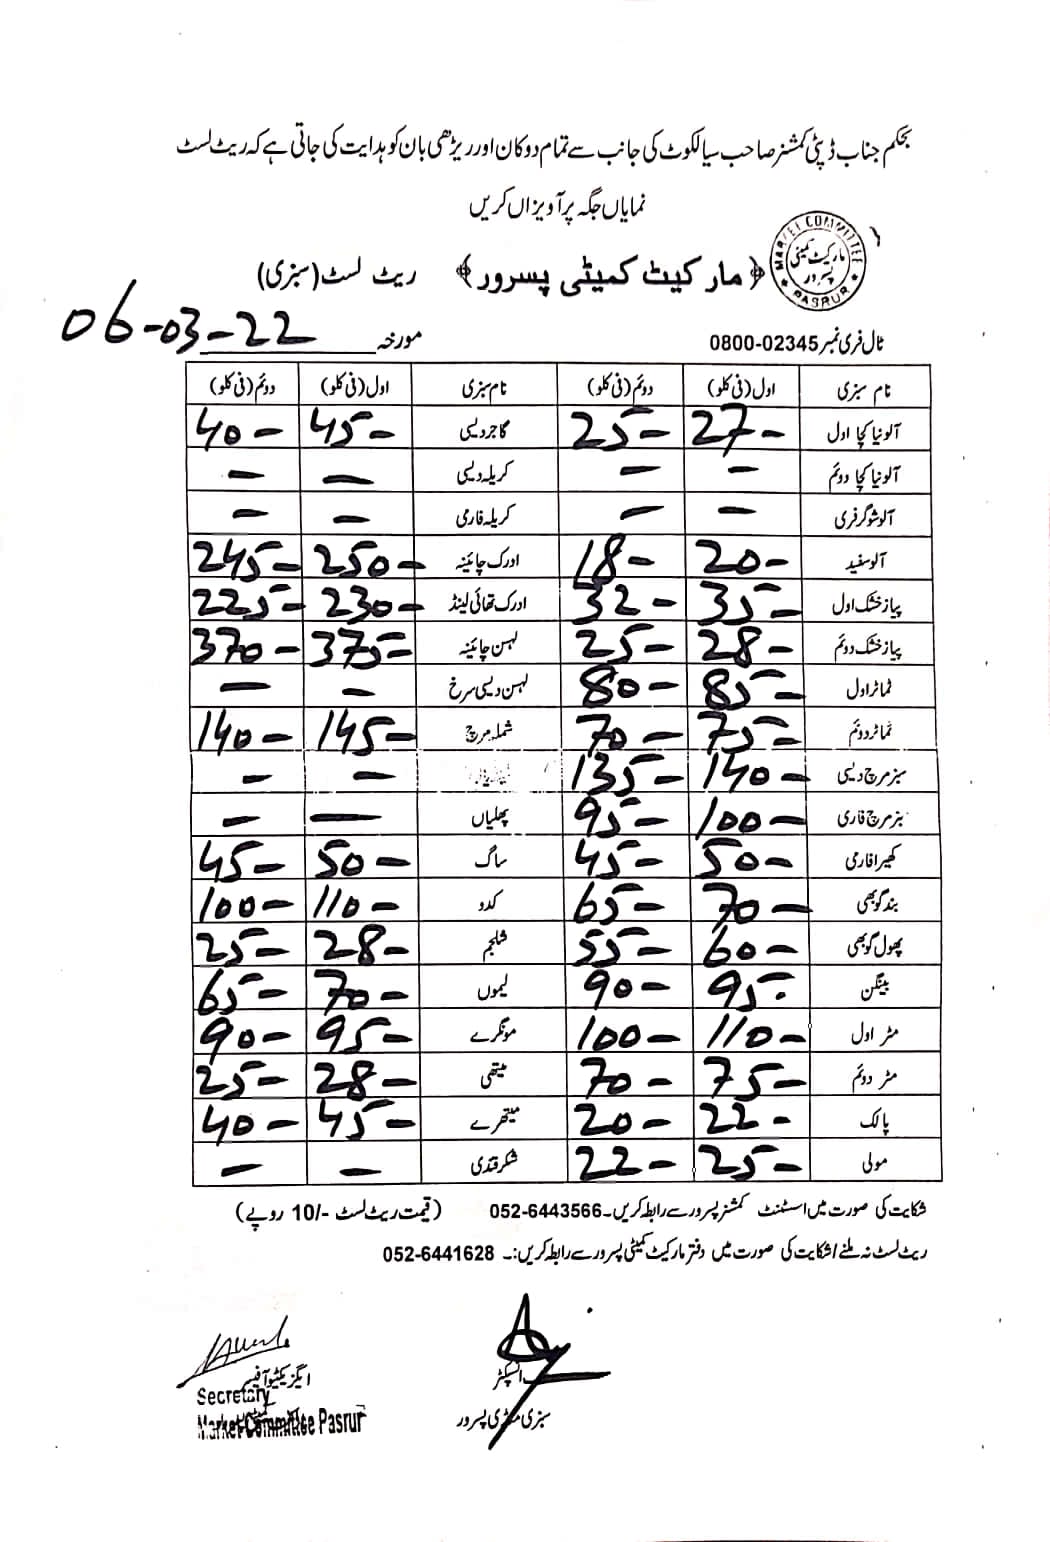 بحکم جناب ڈپٹی کمشنر صاحب سیالکوٹ کی جانب سے تمام دوکان اور ریڑھی بان کو ہدایت کی جاتی ہے کہ ریٹ لسٹ
نمایاں جگہ پر آویزاں کریں
MARKET COMMITTEE
مارکیٹ کمیٹی
پسرور
PASRUR
﴿مارکیٹ کمیٹی پسرور﴾ ریٹ لسٹ (سبزی)
ٹال فری نمبر 0800-02345 مورخہ 06-03-22
نام سبزی اول (فی کلو) دوئم (فی کلو) نام سبزی اول (فی کلو) دوئم (فی کلو)
آلو نیا کچا اول 27- 25- گاجر دیسی 45- 40-
آلو نیا کچا دوئم - - کریلہ دیسی - -
آلو شوگر فری - - کریلہ فارمی - -
آلو سفید 20- 18- ادرک چائینہ 250- 245-
پیاز خشک اول 35- 32- ادرک تھائی لینڈ 230- 225-
پیاز خشک دوئم 28- 25- لہسن چائینہ 375- 370-
ٹماٹر اول 85- 80- لہسن دیسی سرخ - -
ٹماٹر دوئم 75- 70- شملہ مرچ 145- 140-
سبز مرچ دیسی 140- 135- - -
سبز مرچ فارمی 100- 95- پھلیاں - -
کھیرا فارمی 50- 45- ساگ 50- 45-
بند گوبھی 70- 65- کدو 110- 100-
پھول گوبھی 60- 55- شلجم 28- 25-
بینگن 95- 90- لیموں 70- 65-
مٹر اول 110- 100- مونگرے 95- 90-
مٹر دوئم 75- 70- میتھی 28- 25-
پالک 22- 20- میتھرے 45- 40-
مولی 25- 22- شکرقندی - -
شکایت کی صورت میں اسٹنٹ کمشنر پسرور سے رابطہ کریں۔052-6443566 (قیمت ریٹ لسٹ -/10 روپے)
ریٹ لسٹ نہ ملنے / شکایت کی صورت میں دفتر مارکیٹ کمیٹی پسرور سے رابطہ کریں:۔ 052-6441628
انسپکٹر
سبزی منڈی پسرور
ایگزیکٹو آفیسر
Secretary
Market Committee Pasrur